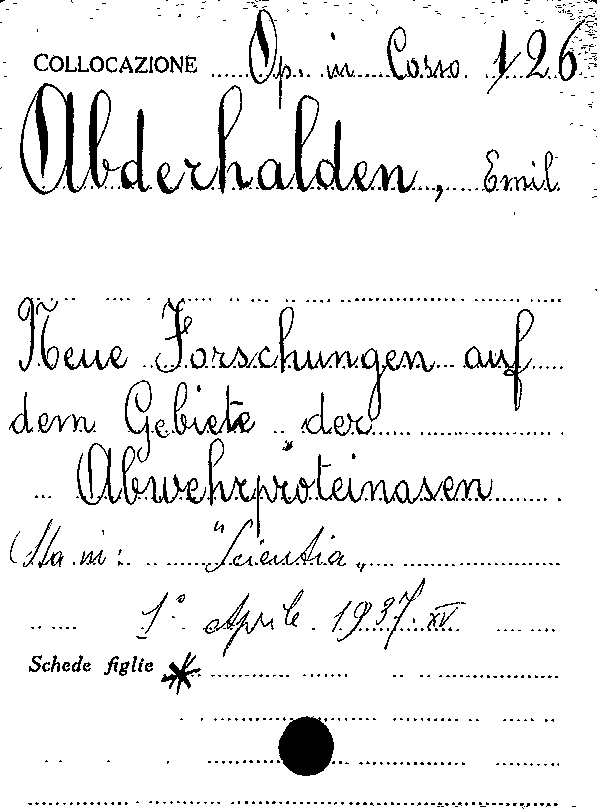 COLLOCAZIONE Op. in Corso 126
Abderhalden, Emil
Neue Forschungen auf
dem Gebiete der
"Abwehrproteinasen
(Sta in: "Scientia„
1° Aprile 1937. XV
Schede figlie *